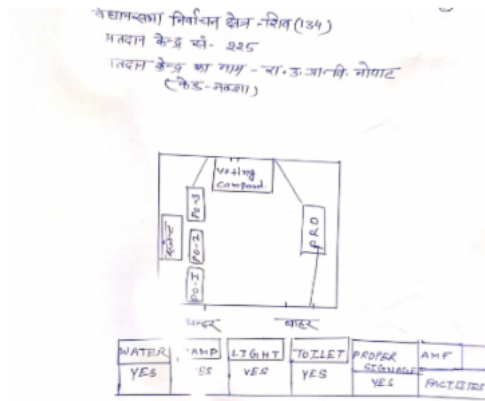 विधानसभा निर्वाचन क्षेत्र - शिव (134)
मतदान केन्द्र सं- 225
मतदान केन्द्र का नाम - रा. उ. प्रा. वि.
(केड-नक्शा)
voting
compand.
PO-3
PO-2
PO-I
एजेन्ट
PRO
अन्दर
बाहर
WATER RAMP LIGHT TOILET PROPER SIGNAGE AMF
YES YES YES YES YES FACILITIES